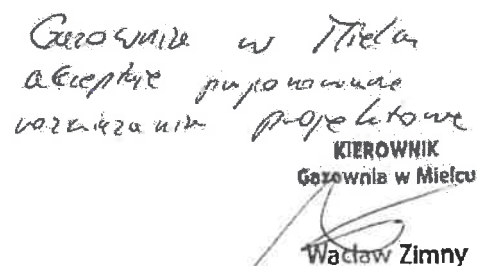 Gazownia w Mielcu
akceptuje proponowane
rozwiązania projektowe
KIEROWNIK
Gazownia w Mielcu
Wacław Zimny